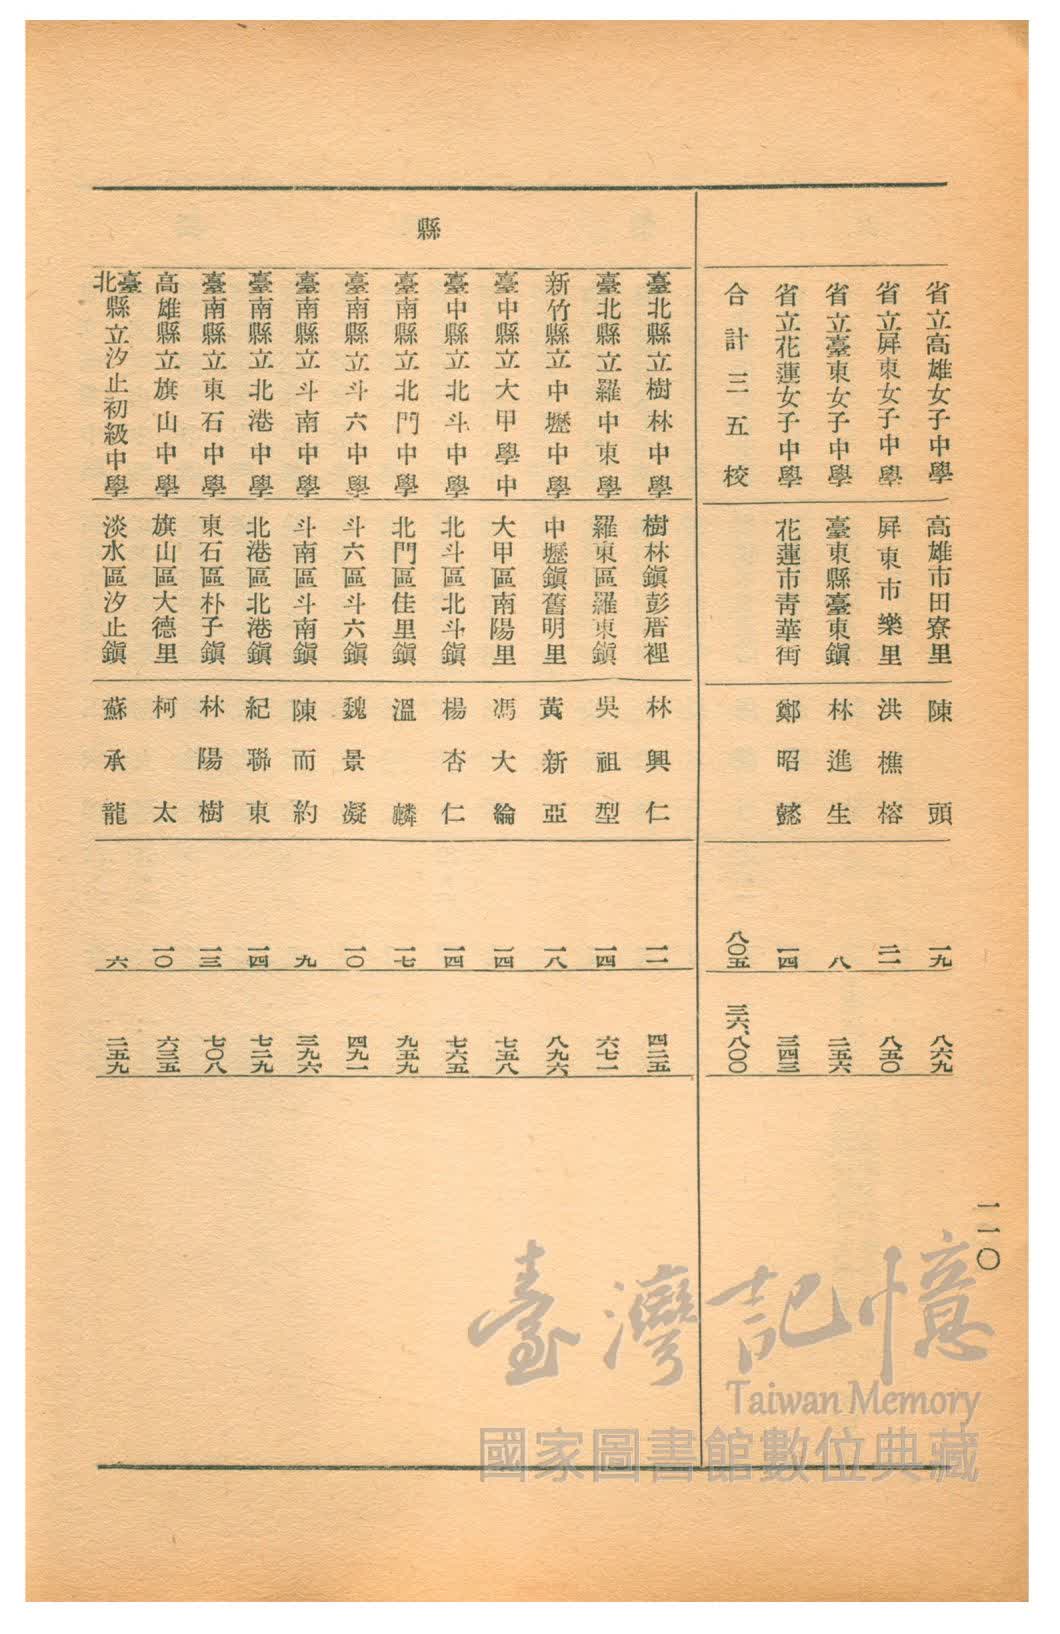 一一〇
省立高雄女子中學 高雄市田寮里 陳頭 一九 八六九
省立屏東女子中學 屏東市樂里 洪樵榕 二一 八五〇
省立臺東女子中學 臺東縣臺東鎭 林進生 八 二五六
省立花蓮女子中學 花蓮市靑華街 鄭昭懿 一四 三四三
合計三五校 八〇五 三六、八〇〇
縣
臺北縣立樹林中學 樹林鎭彭厝裡 林興仁 一一 四二五
臺北縣立羅中東學 羅東區羅東鎭 吳祖型 一四 六七一
新竹縣立中壢中學 中壢鎭舊明里 黃新亞 一八 八九六
臺中縣立大甲學中 大甲區南陽里 馮大綸 一四 七五八
臺中縣立北斗中學 北斗區北斗鎭 楊杏仁 一四 七六五
臺南縣立北門中學 北門區佳里鎭 溫麟 一七 九五九
臺南縣立斗六中學 斗六區斗六鎭 魏景凝 一〇 四九一
臺南縣立斗南中學 斗南區斗南鎭 陳而約 九 三九六
臺南縣立北港中學 北港區北港鎭 紀聯東 一四 七二九
臺南縣立東石中學 東石區朴子鎭 林陽樹 一三 七〇八
高雄縣立旗山中學 旗山區大德里 柯太 一〇 六三五
臺北縣立汐止初級中學 淡水區汐止鎭 蘇承龍 六 二五九
臺灣記憶
Taiwan Memory
國家圖書館數位典藏